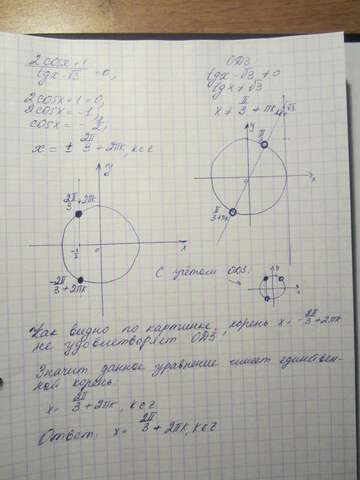 2cosx+1
tgx-√3 =0,
2cosx+1=0,
2cosx=-1,
cosx=-1/2,
x=±2π/3+2πk, k∈z
ОДЗ
tgx-√3≠0
tgx≠√3
x≠π/3+πk, k∈z
√3
π/3
y
0
x
π/3+πk
y
2π/3+2πk
-1/2
0
x
-2π/3+2πk
С учётом ОДЗ.
Как видно по картинке, корень x=-2π/3+2πk
не удовлетворяет ОДЗ.
Значит данное уравнение имеет единствен-
ной корень:
x=2π/3+2πk, k∈z
Ответ: x=2π/3+2πk, k∈z